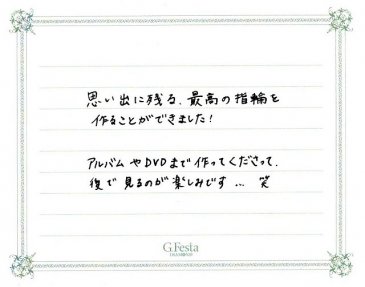 思い出に残る、最高の指輪を
作ることができました!
アルバムやDVDまで作ってくださって、
後で見るのが楽しみです… 笑
G.Festa
DIAMONDS